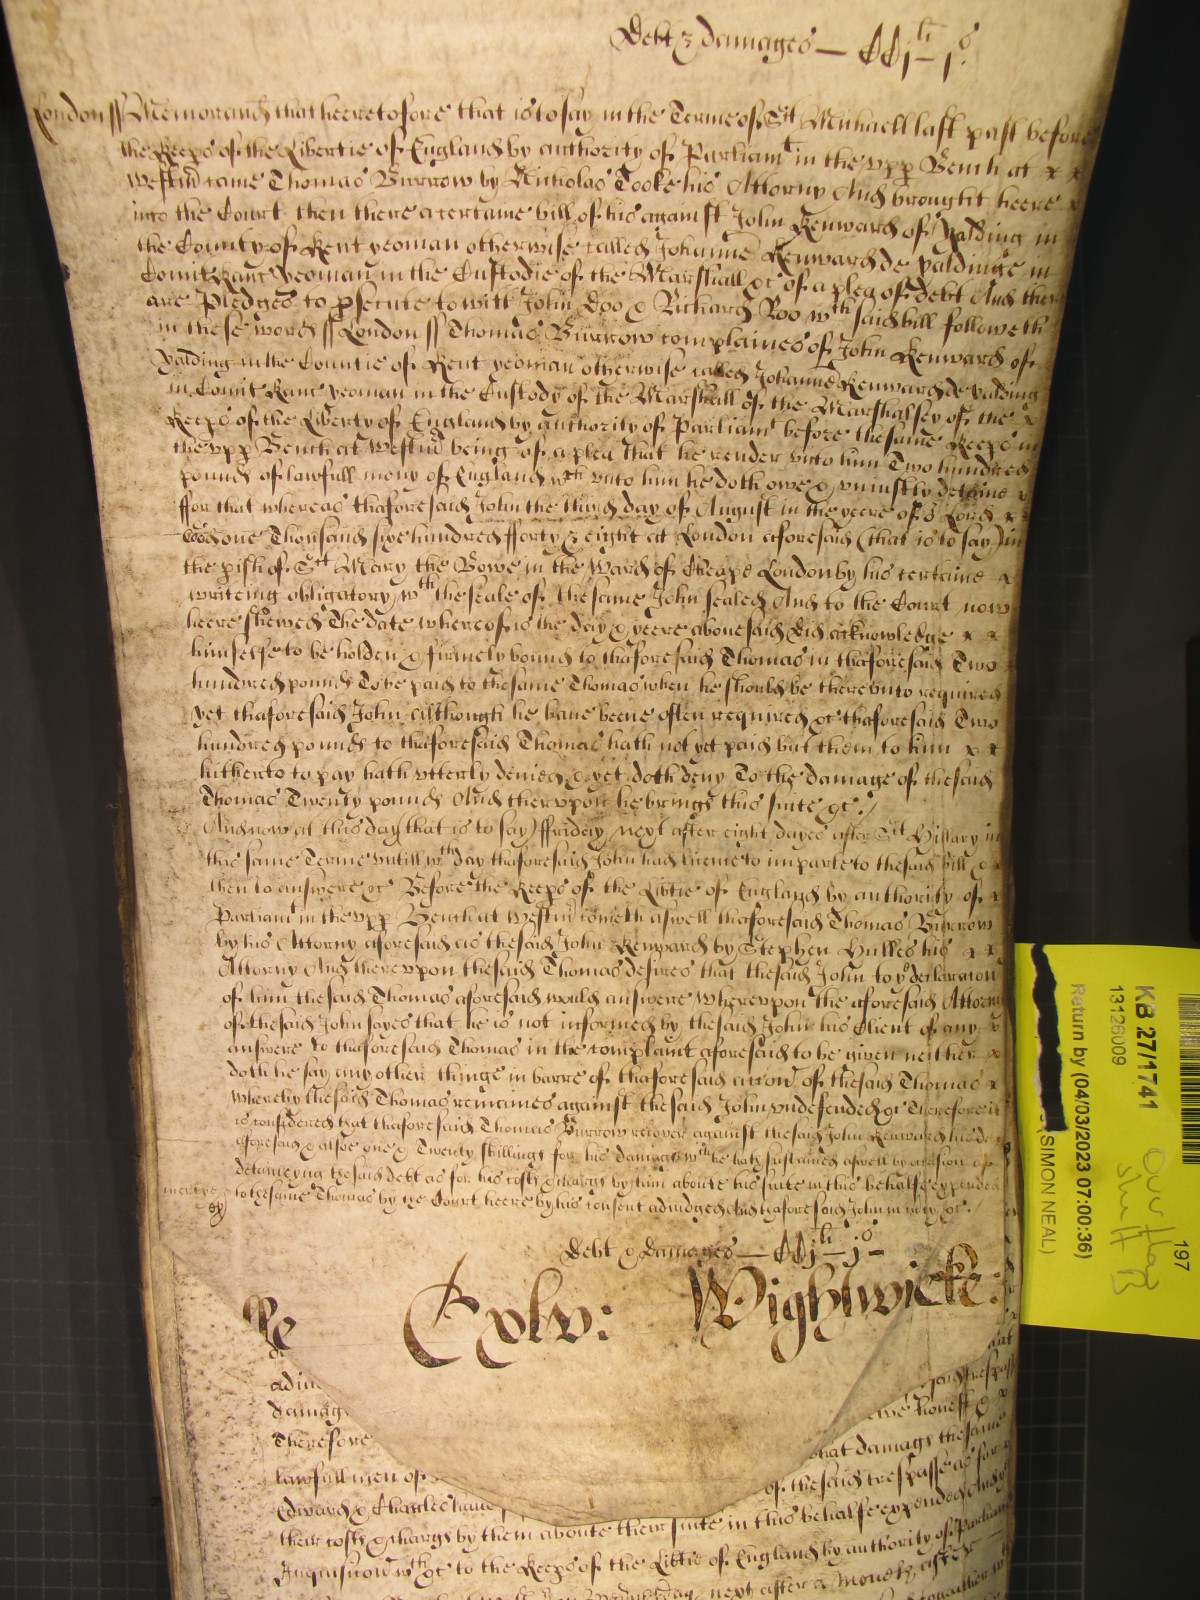 Debt & damages — CCj li – j s
London ss Memorand that heeretofore that is to say in the Terme of St Michaell last past before
the Keeps of the Libertie of England by authority of Parliamt in the vpp Bench at x x
Westm came Thomas Burrow by Nicholas Cooke his Attorny And brought heere x
into the Court then there a certaine bill of his against John Kenward of Yalding in
the County of Kent yeoman otherwise called Johanne Kenward de Yaldinge in
Comit Kanc yeoman in the Custodie of the Marshall &c of a plea of debt And there
are Pledges to psecute to witt John Doo & Richard Roo wch said bill followeth
in these words ss London ss Thomas Burrow complaines of John Kenward of
Yalding in the Countie of Kent yeoman otherwise called Johanne Kenward de Yalding
in Comit Kanc yeoman in the Custody of the Marshall of the Marshalsey of the x
Keeps of the Liberty of England by authority of Parliamt before the same Keeps in
the vpp Bench at Westm being of a plea that he render vnto him Two hundred
pounds of lawfull mony of England wch vnto him he doth owe & vniustly detaine x
ffor that whereas thaforesaid John the third day of August in the yeere of or Lord x x
one Thousand sixe hundred fforty & eight at London aforesaid (that is to say) in
the pish of St Mary the Bowe in the Ward of Cheape London by his certaine x
writeing obligatory wth the seale of the same John sealed And to the Court now
heere shewed The date whereof is the day & yeere abouesaid did acknowledge x x
himselfe to be holden & firmely bound to thaforesaid Thomas in thaforesaid Two
hundred pounds To be paid to the same Thomas when he should be therevnto required
yet thaforesaid John Although he haue beene often required &c thaforesaid Two
hundred pounds to thaforesaid Thomas hath not yet paid but them to him x x
hitherto to pay hath vtterly denied & yet doth deny To the damage of the said
Thomas Twenty pounds And thervpon he brings this suite &c./
And now at this day (that is to say) ffriday next after eight dayes after St Hillary in
this same Terme vntill wch day thaforesaid John had licence to imparle to the said bill & x
then to answere &c Before the Keeps of the Libtie of England by authority of x
Parliamt in the vpp Bench at Westm cometh aswell thaforesaid Thomas Burrow
by his Attorny aforesaid as the said John Kenward by Stephen Hulles his x x
Attorny And therevpon the said Thomas desires that the said John to ye declaracon
of him the said Thomas aforesaid would answere Wherevpon the aforesaid Attorny
of the said John sayes that he is not informed by the said John his Client of any x
answere to thaforesaid Thomas in the complaint aforesaid to be given neither x
doth he say any other thinge in barre of thaforesaid accon of the said Thomas x
Whereby the said Thomas remaines against the said John vndefended &c Therefore it
is considered that thaforesaid Thomas Burrow recover against the said John Kenward his debt
aforesaid & alsoe one & Twenty shillings for his damages wch he hath sustained aswell by occasion of
detaineying the said debt as for his costs & chargs by him aboute his suite in this behalfe expended
to the same Thomas by the Court heere by his consent adiudged And thaforesaid John in mcy &c./
Debt & Damages — CCj li – j s –
Cxlv: Wightwicke:
damag
Therefore that damags the same
lawfull men of of the said trespasse as for
Edward & Charles haue
their costs & chargs by them aboute their suite in this behalfe expended And
Inquisicon wch &c to the Keeps of the Libtie of England by authority of Parliam
next after a Moneth
KB 27/1741
13126009
Return by (04/03/2023 07:00:36)
SIMON NEAL)
197